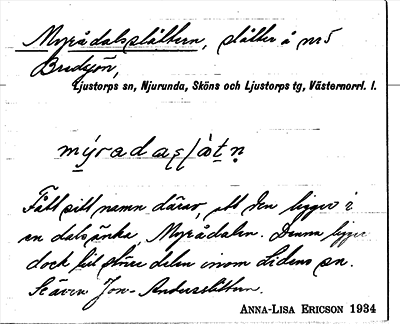 Myrådalsslåttern, slåtter å nr 5
Bredsjön,
Ljustorps sn, Njurunda, Sköns och Ljustorps tg, Västernorrl. l.
Fått sitt namn därav, att den ligger i
en dalsänka Myrådalen. Denna ligger
dock till större delen inom Lidens sn.
Se även Jon-Andersslåttern.
ANNA-LISA ERICSON 1934